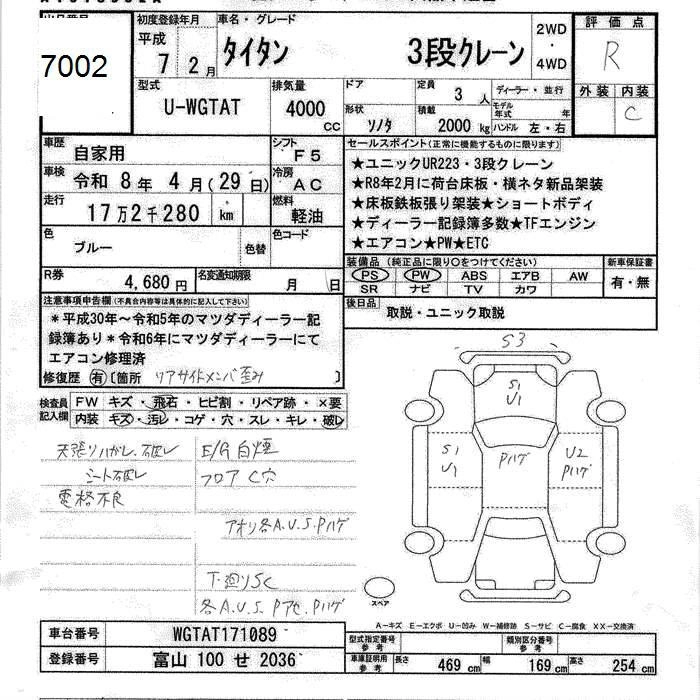 7002
初度登録年月
平成
7 2月
車名・グレード
タイタン 3段クレーン
2WD
・
4WD
評価点
R
外装 内装
C
型式
U-WGTAT
排気量
4000
cc
ドア
形状
ソノタ
定員
3 人
積載
2000 kg
ディーラー・並行
モデル年式 年
ハンドル 左・右
車歴
自家用
シフト
F5
車検
令和 8年 4月(29日)
冷房
AC
走行
17万2千280 km
燃料
軽油
色
ブルー
色替
色コード
R券
4,680円
名変通知期限
月 日
セールスポイント(正常に機能するものに限ります)
★ユニックUR223・3段クレーン
★R8年2月に荷台床板・横ネタ新品架装
★床板鉄板張り架装★ショートボディ
★ディーラー記録簿多数★TFエンジン
★エアコン★PW★ETC
装備品(純正品に限り○をつけてください)
PS PW ABS エアB AW
SR ナビ TV カワ
新車保証書
有・無
後日品
取説・ユニック取説
注意事項申告欄(不具合内容等は具体的に記入して下さい)
*平成30年～令和5年のマツダディーラー記
録簿あり*令和6年にマツダディーラーにて
エアコン修理済
修復歴 有 [箇所 リアサイドメンバ歪み ]
検査員
記入欄
FW キズ・飛石・ヒビ割・リペア跡・×要
内装 キズ・汚レ・コゲ・穴・スレ・キレ・破レ
天張りハガレ.破レ
シート破レ
電格不良
E/G白煙
フロアC穴
アオリ各A.U.S.Pハゲ
T.廻りSC
各A.U.S.PアC.Pハゲ
S3
S1
U1
S1
U1
Pハゲ
U2
Pハゲ
スペア
A-キズ E-エクボ U-凹み W-補修跡 S-サビ C-腐食 XX-交換済
車台番号
WGTAT171089
登録番号
富山 100 せ 2036
型式指定番号
参考
類別区分番号
参考
車庫証明用
参考
長さ 469 cm 幅 169 cm 高さ 254 cm